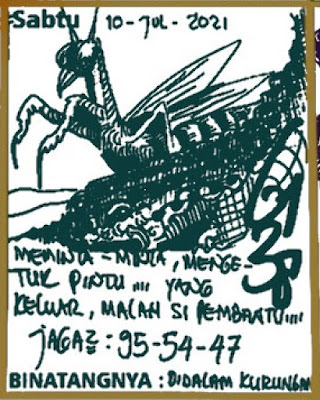 Sabtu 10-JUL-2021
MEMINTA-MINTA, MENGE-
TUK PINTU.... YANG
KELUAR, MALAH SI PEMBANTU....
JAGA2 : 95-54-47
BINATANGNYA : DIDALAM KURUNGAN